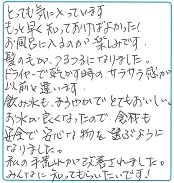 とっても気に入っています
もっと早く知っておけばよかった!
お風呂に入るのが楽しみです。
髪のえが、フるフるになりました。
ドライヤーで乾かす時のサラサラ感が
以前と違います。
飲み水も、まろやかでとてもおいしい。
お水が良くなったので、食材も
安全で安心な物を選ぶように
なりました。
私の手荒れが改善されました。
みんなに知ってもらいたいです!